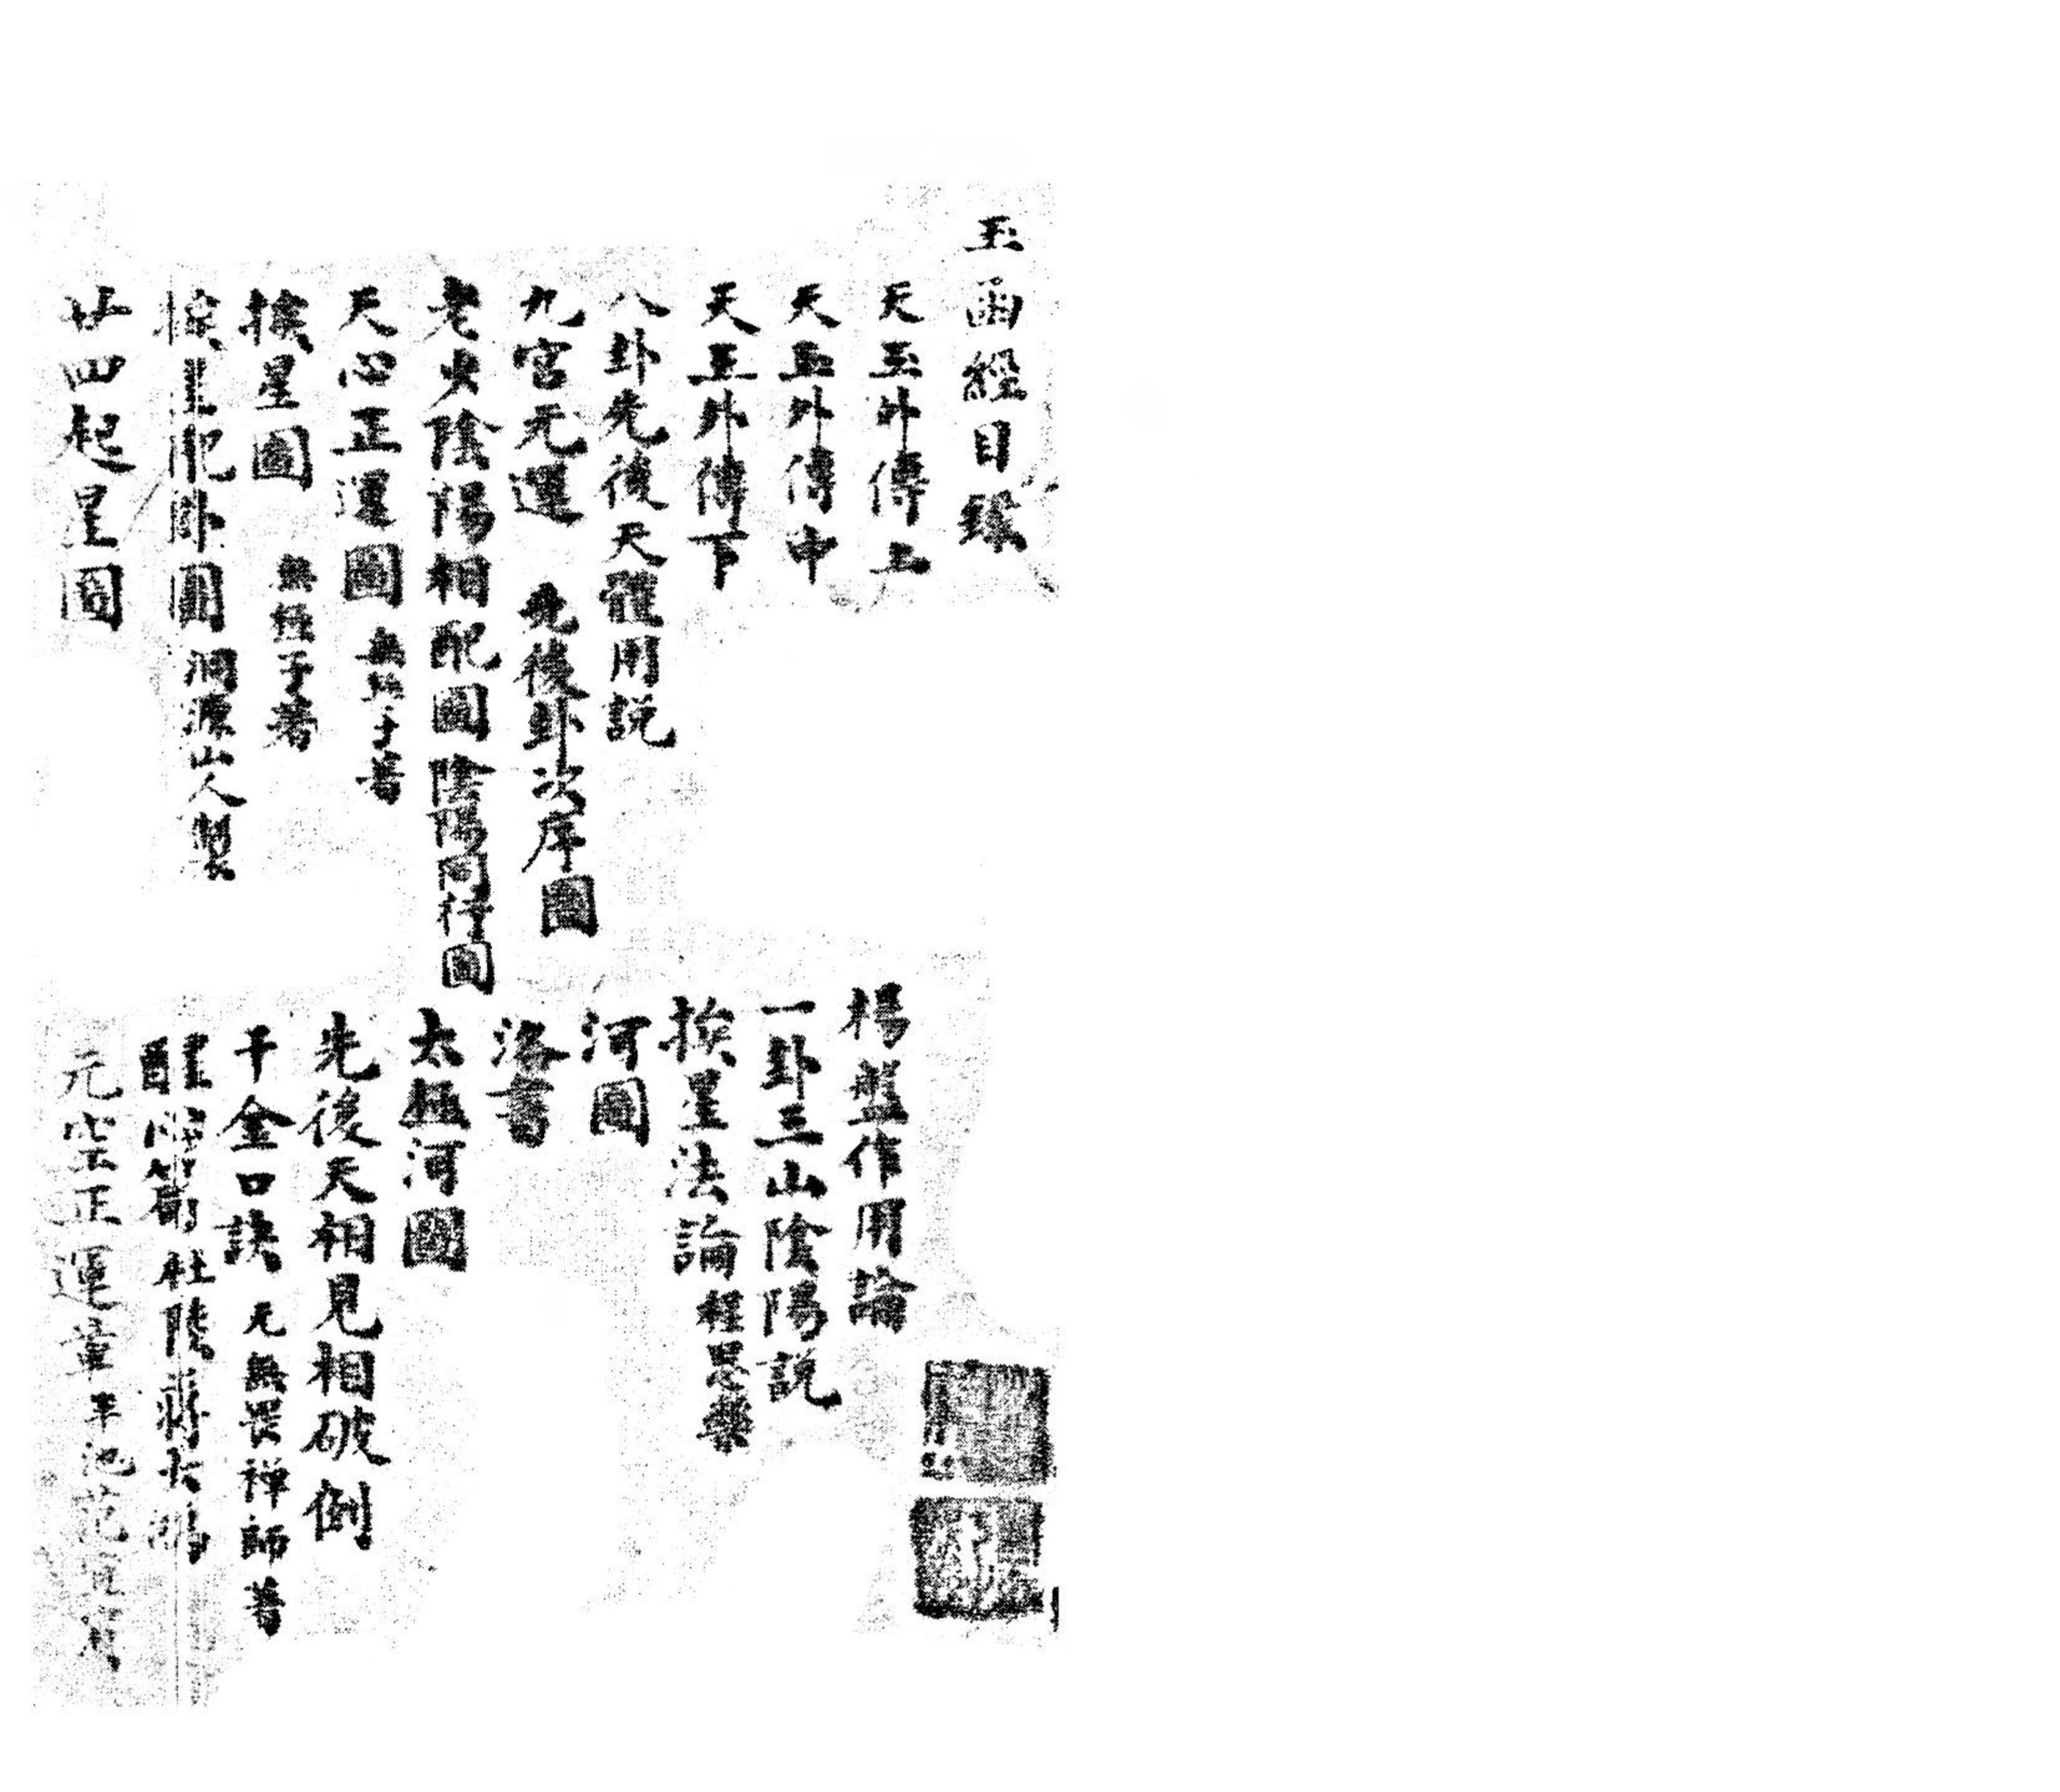 玉函經目錄
天玉外傳上
天玉外傳中
天玉外傳下
八卦先後天體用説
九宮元運 先後卦次序圖
老少陰陽相配圖 陰陽同行圖
天心正運圖 無極子著
挨星圖 無極子著
挨星配卦圖 洞源山人製
廿四起星圖
楊盤作用論
一卦三山陰陽説
挨星法論 程思樂
河圖
洛書
太極河圖
先後天相見相破倒
千金口訣 元無畏禪師著
醒心篇 杜陵蔣大鴻
元空正運 平池范宜賓